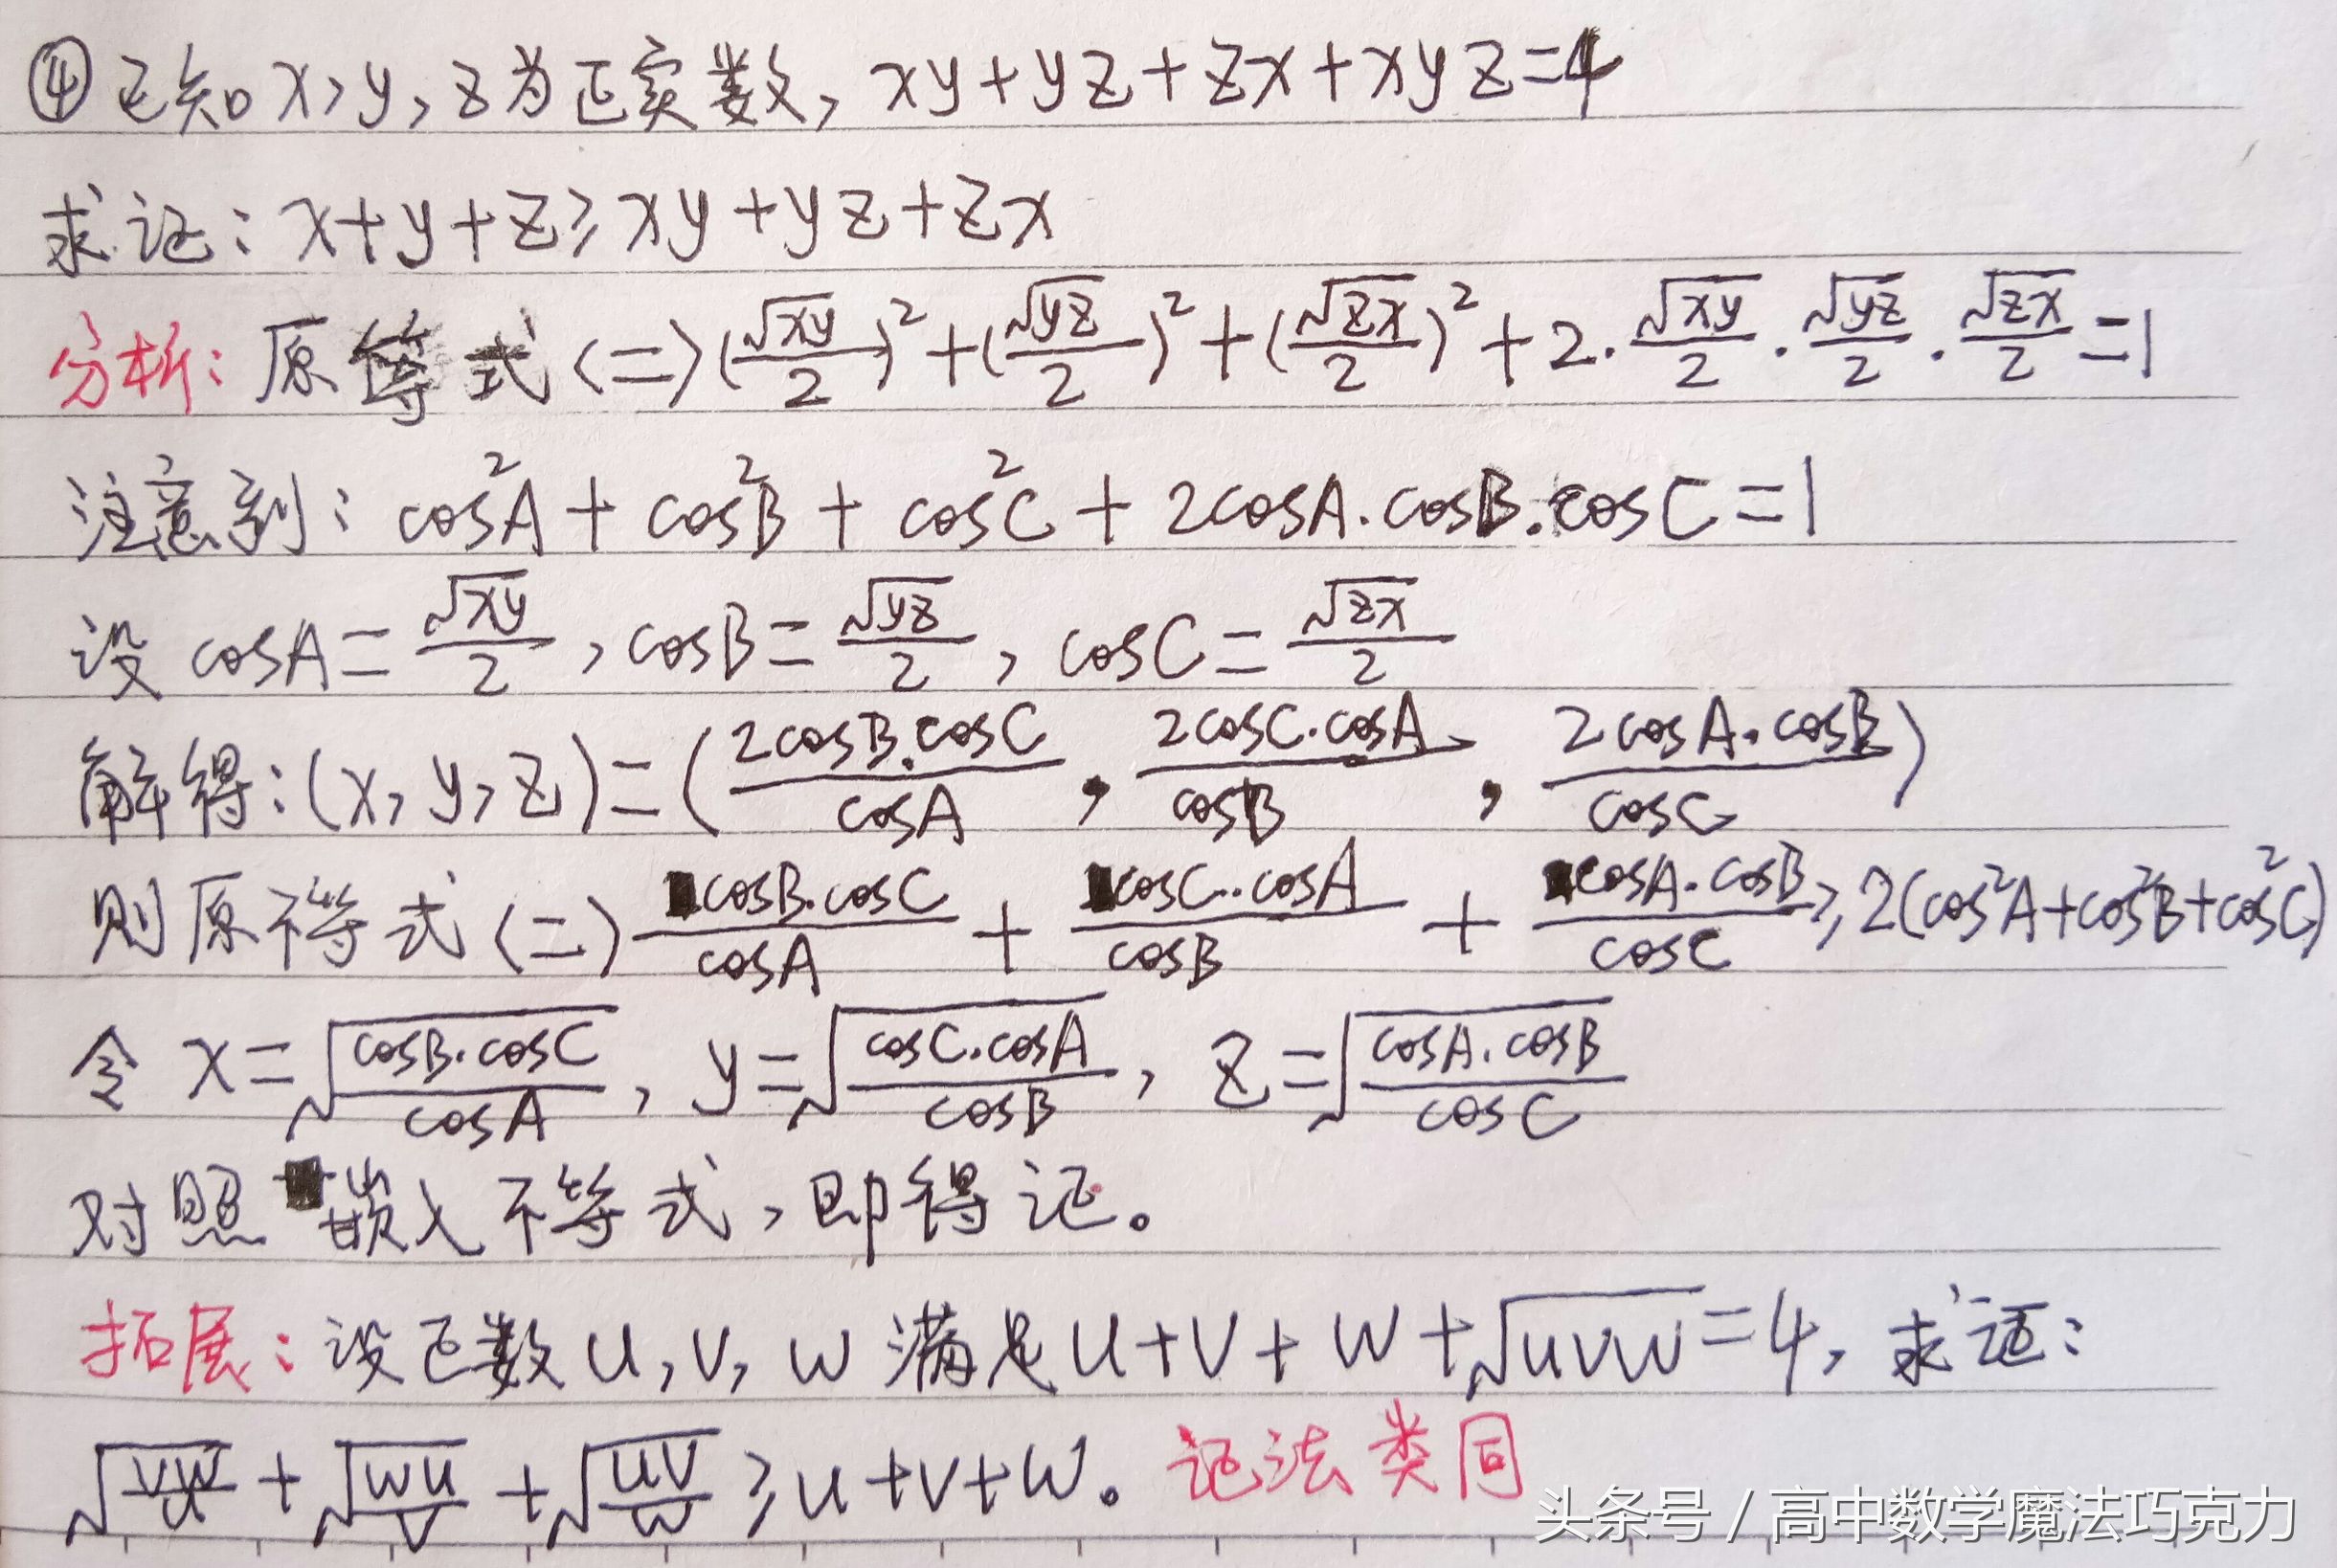 ④已知x,y,z为正实数,xy+yz+zx+xyz=4
求证:x+y+z≥xy+yz+zx
分析:原等式<=>(√xy/2)²+(√yz/2)²+(√zx/2)²+2·√xy/2·√yz/2·√zx/2=1
注意到:cos²A+cos²B+cos²C+2cosA·cosB·cosC=1
设cosA=√xy/2,cosB=√yz/2,cosC=√zx/2
解得:(x,y,z)=(2cosB·cosC/cosA,2cosC·cosA/cosB,2cosA·cosB/cosC)
则原不等式<=>cosB·cosC/cosA+cosC·cosA/cosB+cosA·cosB/cosC≥2(cos²A+cos²B+cos²C)
令x=√(cosB·cosC/cosA),y=√(cosC·cosA/cosB),z=√(cosA·cosB/cosC)
对照嵌入不等式,即得证。
拓展:设正数u,v,w满足u+v+w+√uvw=4,求证:
√(vw/u)+√(wu/v)+√(uv/w)≥u+v+w。证法类同
头条号/高中数学魔法巧克力